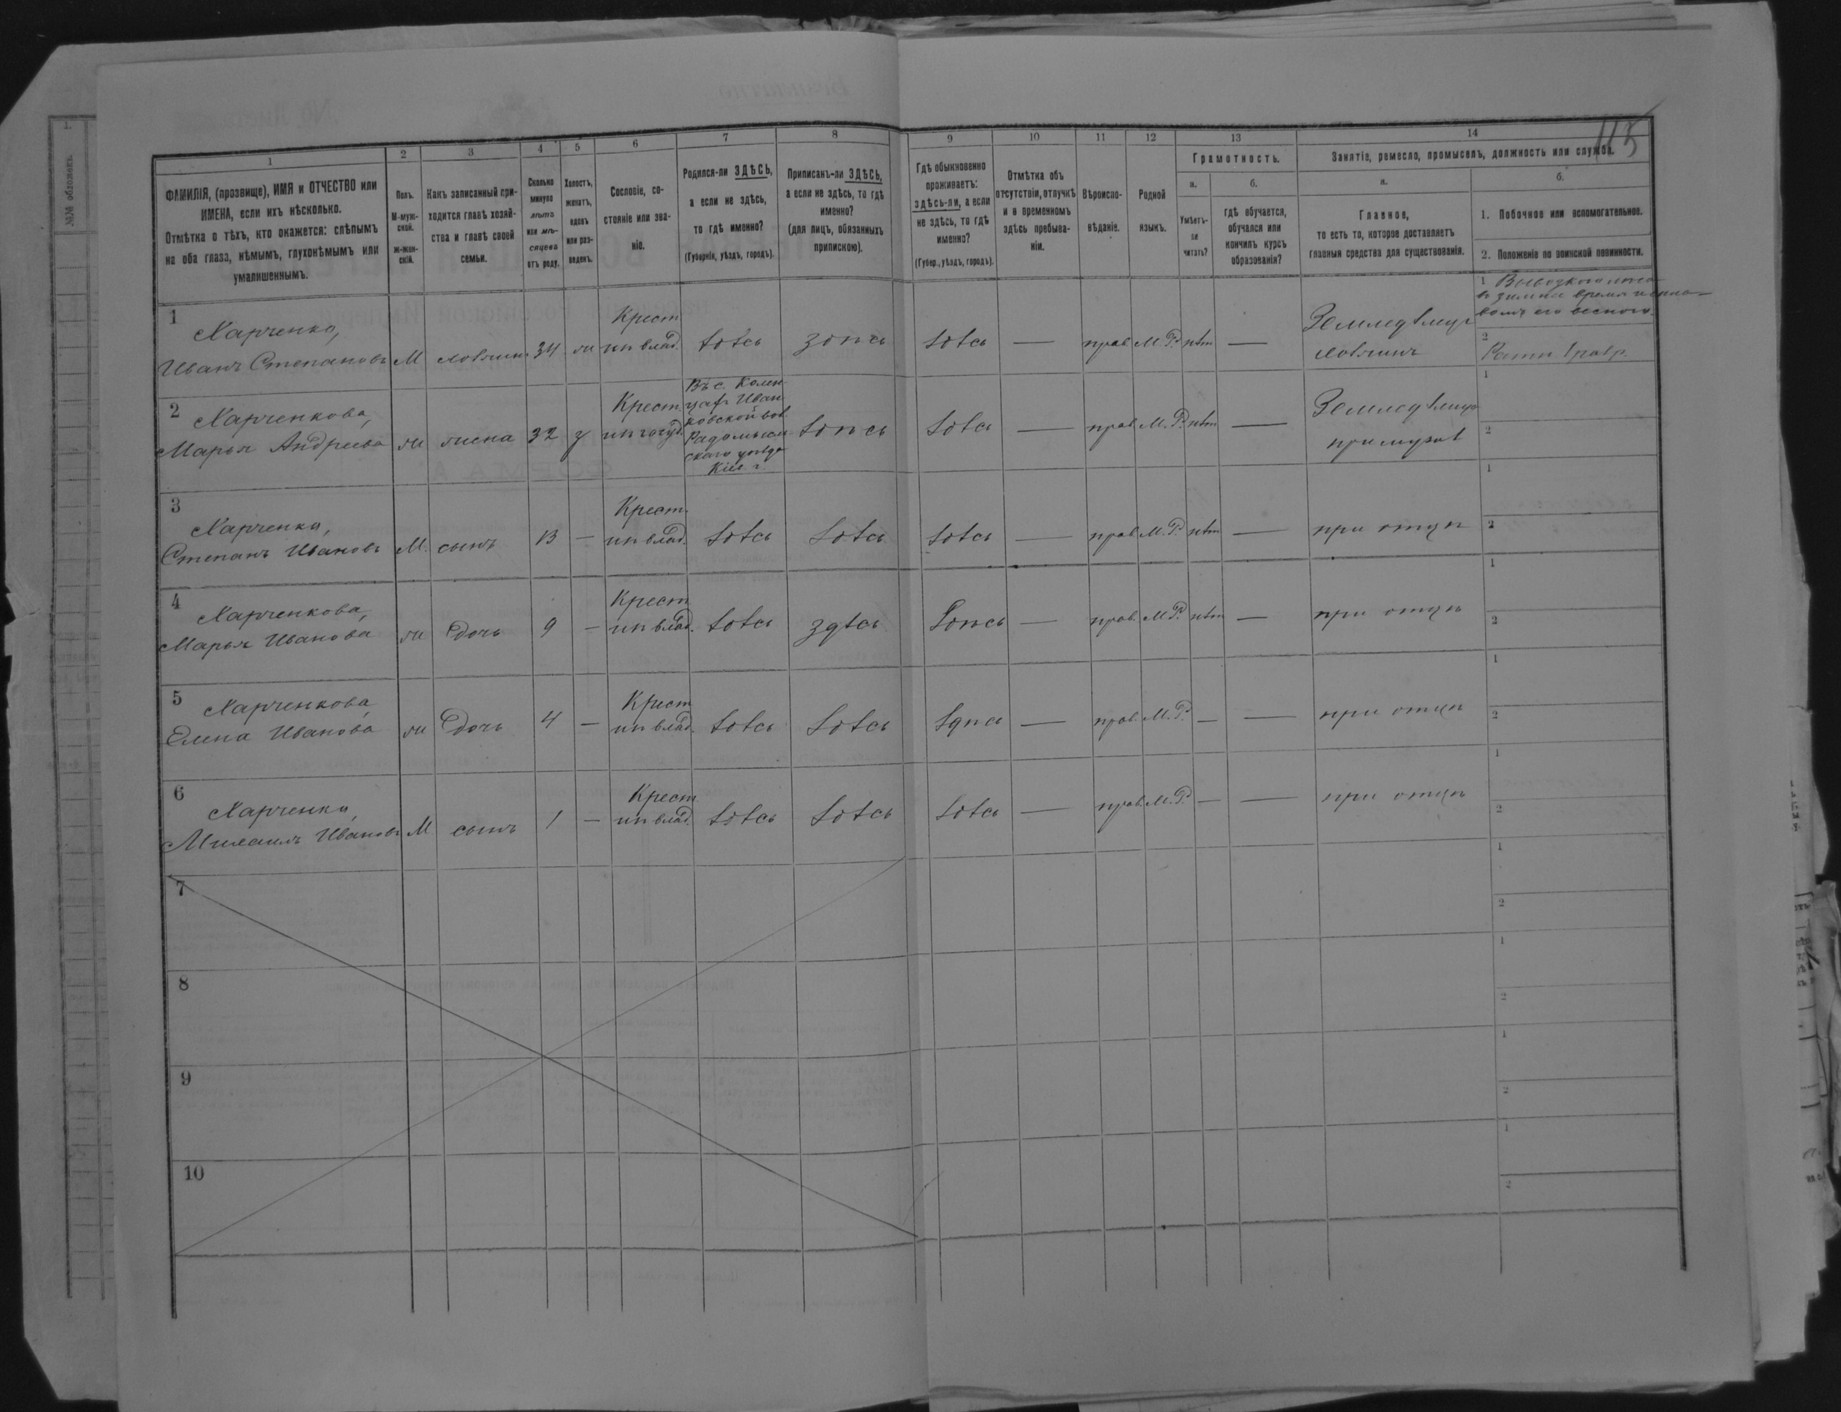 115
1
2
3
4
5
6
7
8
9
10
11
12
13
14
ФАМИЛІЯ, (прозвище), ИМЯ и ОТЧЕСТВО или
ИМЕНА, если ихъ нѣсколько.
Отмѣтка о тѣхъ, кто окажется: слѣпымъ
на оба глаза, нѣмымъ, глухонѣмымъ или
умалишеннымъ.
Полъ.
М-муж-
ской.
ж-жен-
скій.
Какъ записанный при-
ходится главѣ хозяй-
ства и главѣ своей
семьи.
Сколько
минуло
лѣтъ
или мѣ-
сяцевъ
отъ роду.
Холостъ,
женатъ,
вдовъ
или раз-
веденъ.
Сословіе, со-
стояніе или зва-
ніе.
Родился-ли ЗДѢСЬ,
а если не здѣсь,
то гдѣ именно?
(Губернія, уѣздъ, городъ).
Приписанъ-ли ЗДѢСЬ,
а если не здѣсь, то гдѣ
именно?
(для лицъ, обязанныхъ
припискою).
Гдѣ обыкновенно
проживаетъ:
здѣсь-ли, а если
не здѣсь, то гдѣ
именно?
(Губер., уѣздъ, городъ).
Отмѣтка объ
отсутствіи, отлучкѣ
и о временномъ
здѣсь пребыва-
ніи.
Вѣроиспо-
вѣданіе.
Родной
языкъ.
Грамотность.
а.
Умѣетъ-
ли
читать?
б.
гдѣ обучается,
обучался или
кончилъ курсъ
образованія?
Занятіе, ремесло, промыселъ, должность или служба.
а.
Главное,
то есть то, которое доставляетъ
главныя средства для существованія.
б.
1. Побочное или вспомогательное.
2. Положеніе по воинской повинности.
1
Харченко,
Иванъ Степановъ М хозяинъ 34 ж
Крест
изъ влад.
здѣсь здѣсь здѣсь — прав М.Р. нѣт —
Земледѣлецъ
хозяинъ
1
въ зимнее время
2
Ратн.
2
Харченкова,
Марья Андреева ж жена 32 з
Крест
изъ госуд.
Въ с.
Иван
ковской вол
Радомысл
скаго уезда
Кіев. г.
здѣсь здѣсь — прав М.Р. нѣт —
Земледѣлецъ
при мужѣ
1
2
3
Харченко,
Степанъ Ивановъ М. сынъ 13 —
Крест.
изъ влад.
здѣсь здѣсь здѣсь — прав М.Р. нѣт — при отцѣ
1
2
4
Харченкова,
Марья Иванова ж дочь 9 —
Крест
изъ влад.
здѣсь здѣсь здѣсь — прав М.Р. нѣт — при отцѣ
1
2
5
Харченкова,
Елена Иванова ж дочь 4 —
Крест
изъ влад.
здѣсь здѣсь здѣсь — прав М.Р. — — при отцѣ
1
2
6
Харченко,
Михаилъ Ивановъ М сынъ 1 —
Крест
изъ влад.
здѣсь здѣсь здѣсь — прав М.Р. — — при отцѣ
1
2
7
1
2
8
1
2
9
1
2
10
1
2